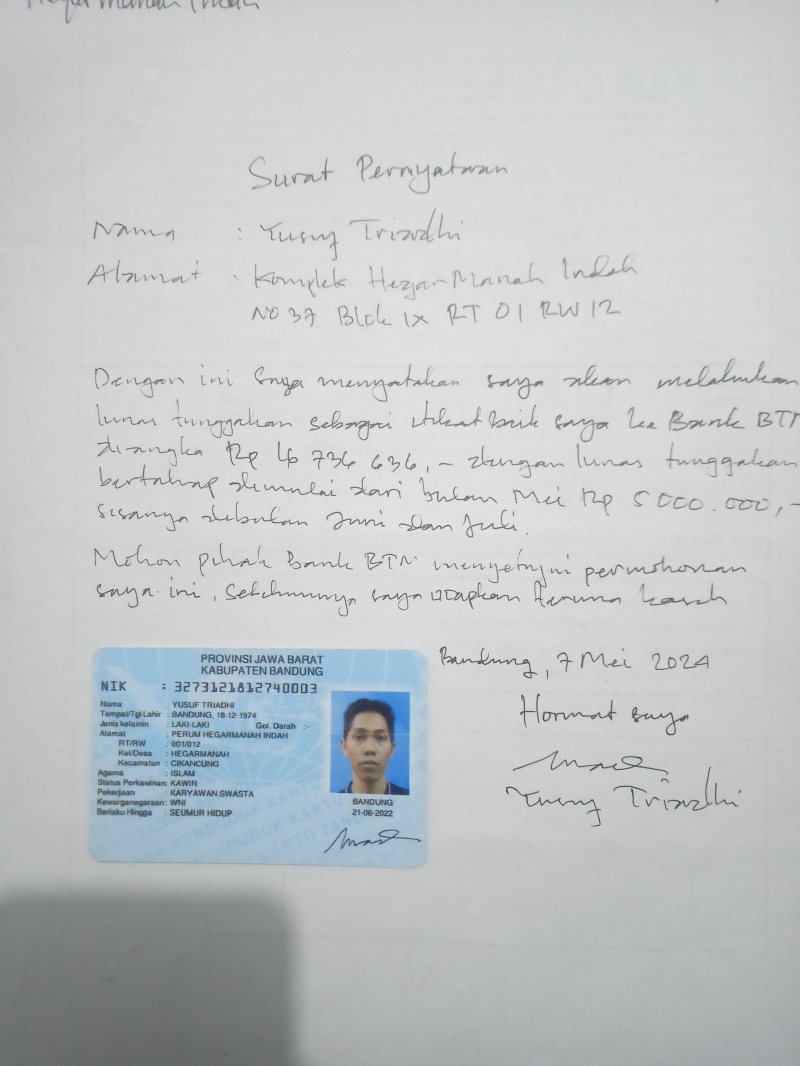 Hegar Manah Indah
Surat Pernyataan
Nama : Yusuf Triadhi
Alamat : Komplek Hegar Manah Indah
NO 37 Blok IX RT 01 RW 12
Dengan ini saya menyatakan saya akan melakukan
lunas tunggakan sebagai itikat baik saya ke Bank BTN
diangka Rp 16 736 636,- dengan lunas tunggakan
bertahap dimulai dari bulan Mei Rp 5 000.000,-
sisanya dibulan Juni dan Juli.
Mohon pihak Bank BTN menyetujui permohonan
saya ini, sebelumnya saya ucapkan terima kasih
Bandung, 7 Mei 2024
Hormat saya
Yusuf Triadhi
PROVINSI JAWA BARAT
KABUPATEN BANDUNG
NIK : 3273121812740003
Nama : YUSUF TRIADHI
Tempat/Tgl Lahir : BANDUNG, 18-12-1974
Jenis kelamin : LAKI-LAKI Gol. Darah :-
Alamat : PERUM HEGARMANAH INDAH
RT/RW : 001/012
Kel/Desa : HEGARMANAH
Kecamatan : CIKANCUNG
Agama : ISLAM
Status Perkawinan: KAWIN
Pekerjaan : KARYAWAN SWASTA
Kewarganegaraan: WNI
Berlaku Hingga : SEUMUR HIDUP
BANDUNG
21-06-2022